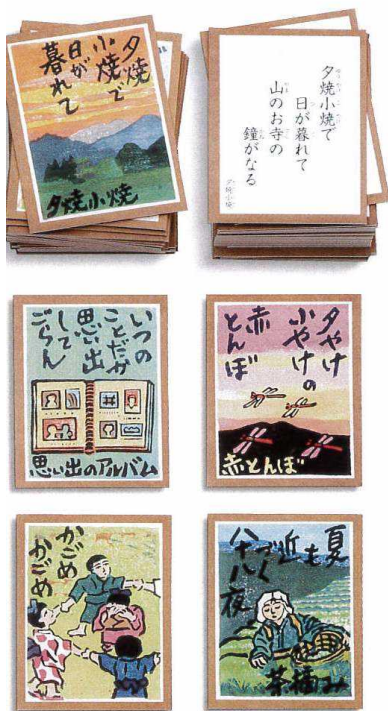 夕焼
小焼で
日が
暮れて
夕焼小焼
夕焼小焼で
日が暮れて
山のお寺の
鐘がなる
夕焼小焼
いつの
ことだか
思い出
して
ごらん
思い出のアルバム
夕やけ
小やけの
赤
とんぼ
赤とんぼ
かごめ
かごめ
夏も
近づく
八十八夜
茶摘み